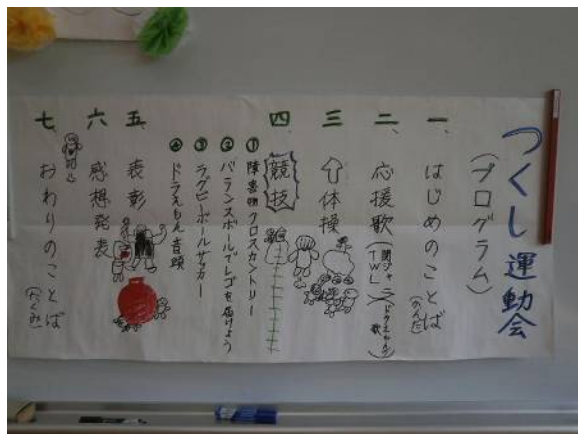 つくし運動会
(プログラム)
一、はじめのことば
二、応援歌(関ジャニ TWL)(ドラえもん歌)
三、体操
四、競技
① 障害物クロスカントリー
② バランスボールでレゴを届けよう
③ ラグビーボールサッカー
④ ドラえもん音頭
五、表彰
六、感想発表
七、おわりのことば